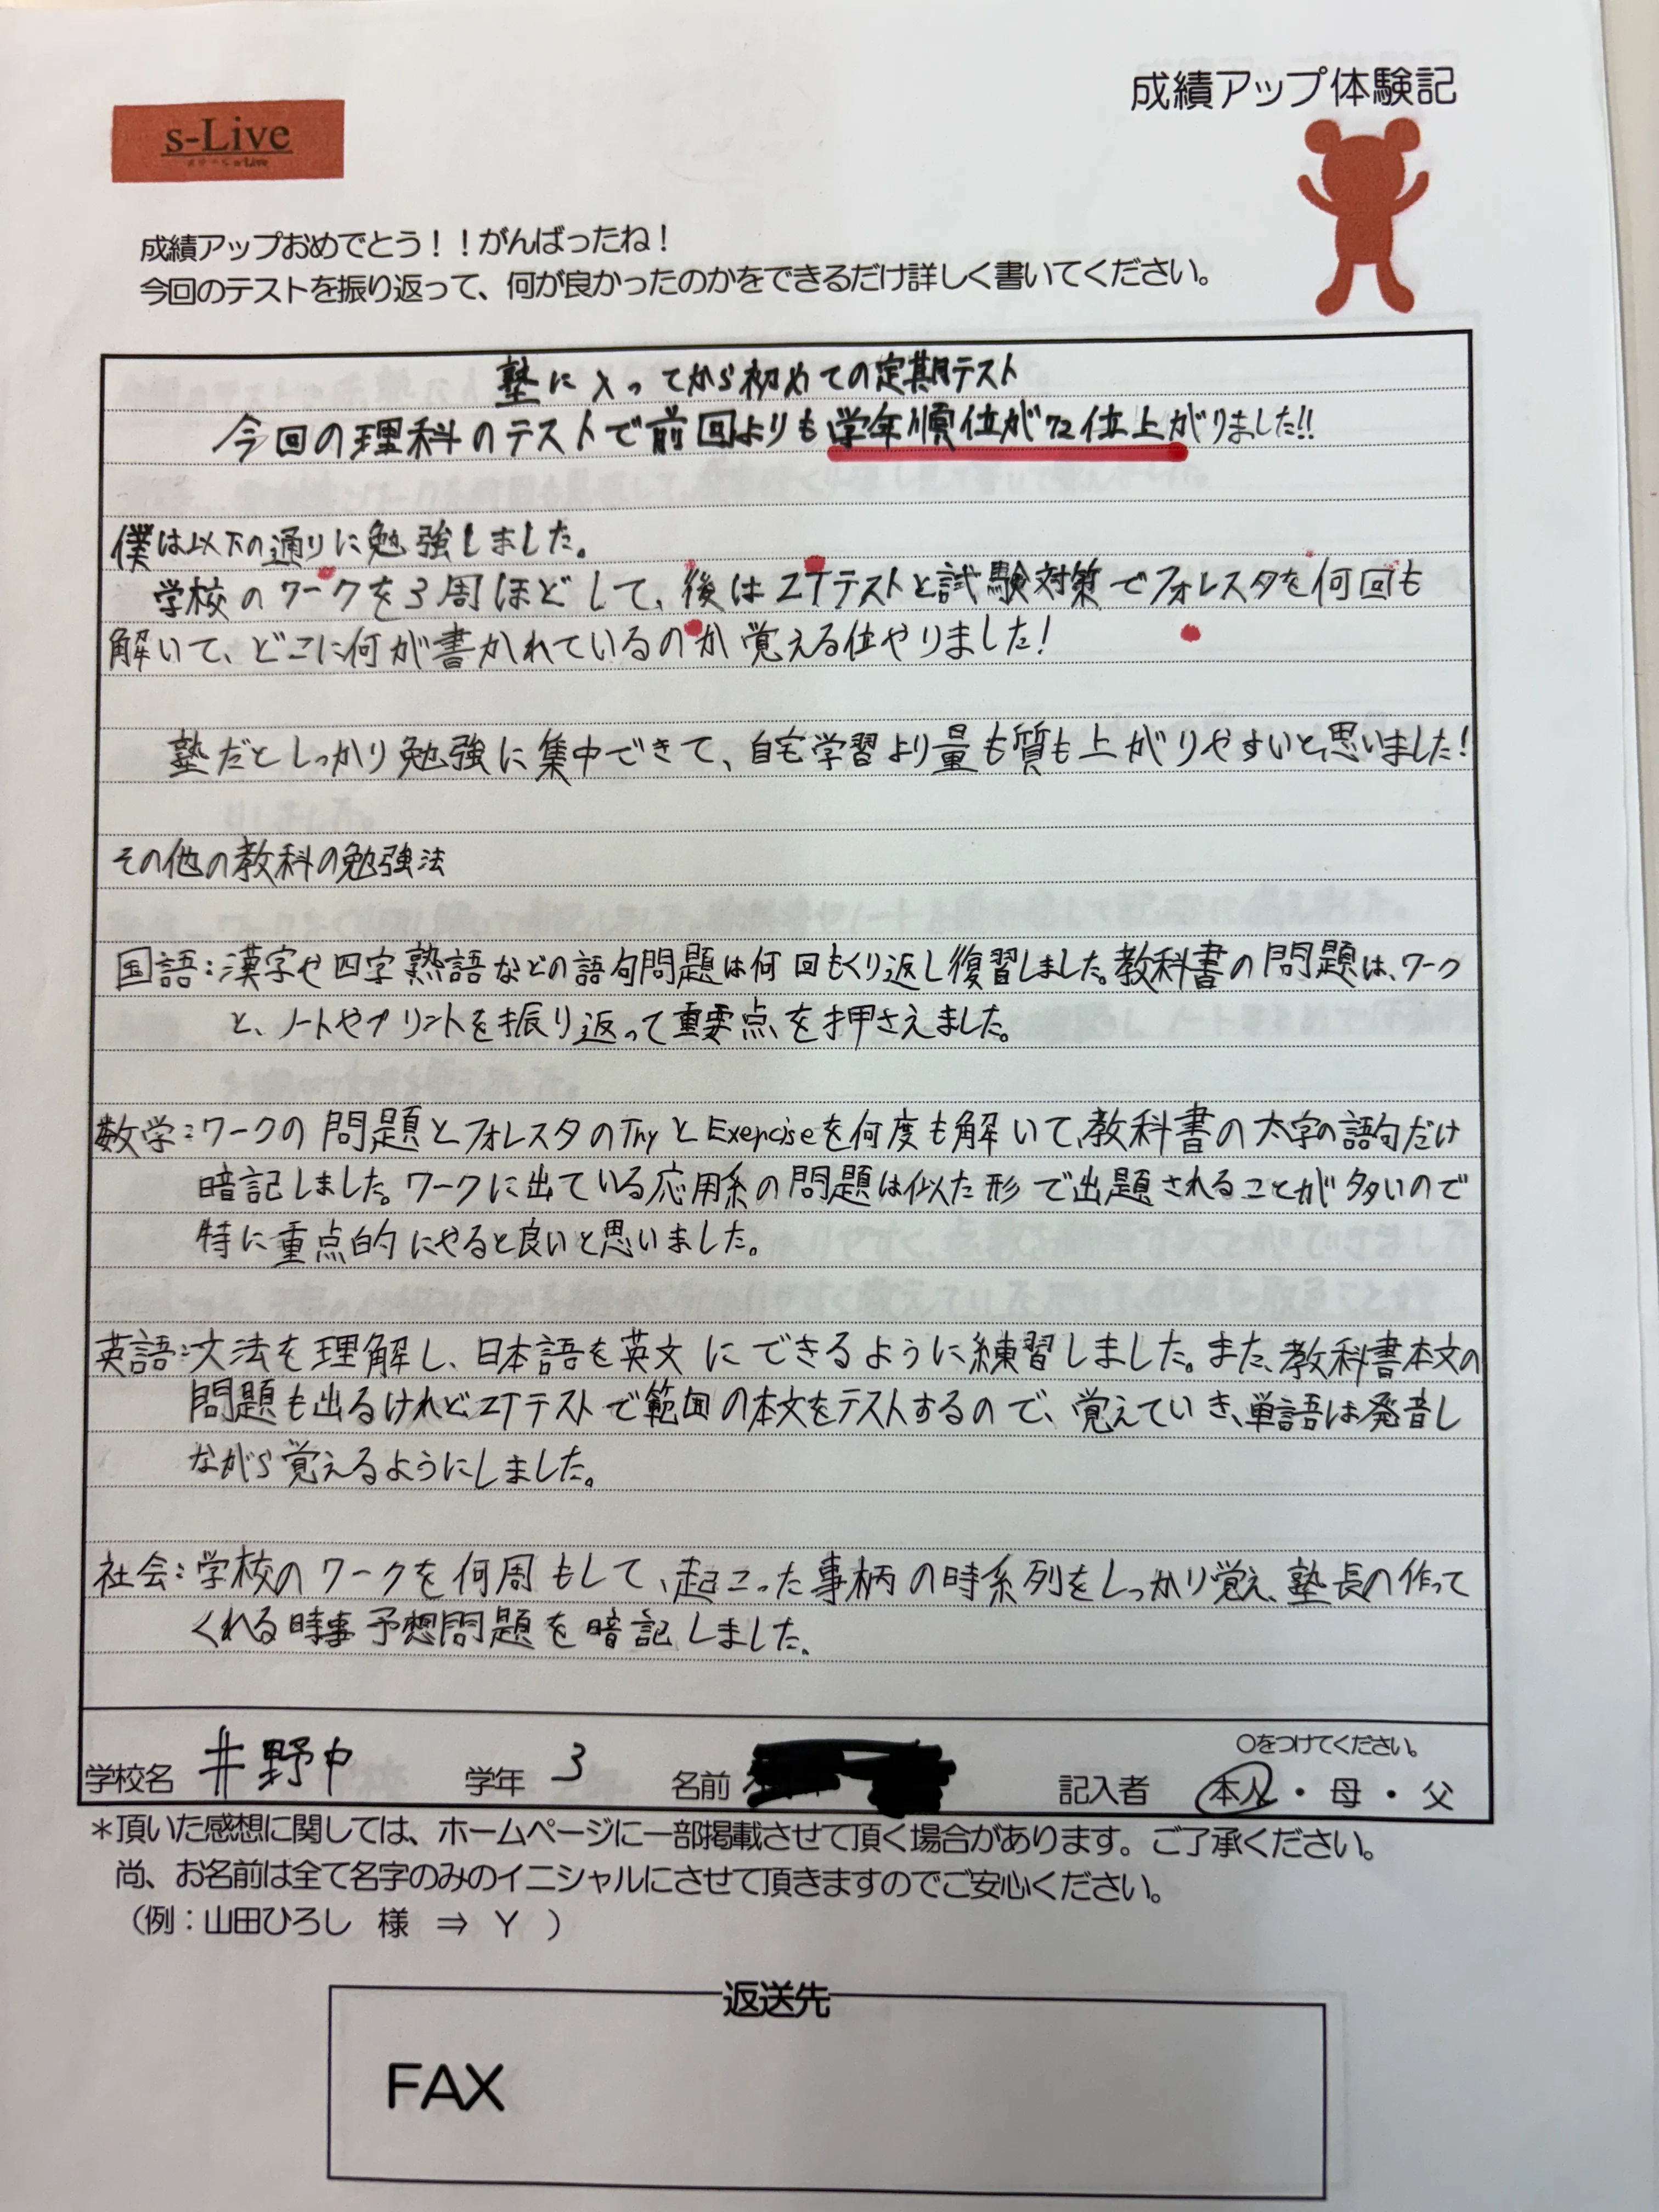 成績アップ体験記
s-Live
成績アップおめでとう！！がんばったね！
今回のテストを振り返って、何が良かったのかをできるだけ詳しく書いてください。
塾に入ってから初めての定期テスト
今回の理科のテストで前回よりも学年順位が72位上がりました!!
僕は以下の通りに勉強しました。
学校のワークを3周ほどして、後はZTテストと試験対策でフォレスタを何回も
解いて、どこに何が書かれているのか覚える位やりました！
塾だとしっかり勉強に集中できて、自宅学習より量も質も上がりやすいと思いました！
その他の教科の勉強法
国語：漢字や四字熟語などの語句問題は何回もくり返し復習しました。教科書の問題は、ワーク
と、ノートやプリントを振り返って重要点を押さえました。
数学：ワークの問題とフォレスタのTryとExerciseを何度も解いて、教科書の太字の語句だけ
暗記しました。ワークに出ている応用系の問題は似た形で出題されることが多いので
特に重点的にやると良いと思いました。
英語：文法を理解し、日本語を英文にできるように練習しました。また、教科書本文の
問題も出るけれどZTテストで範囲の本文をテストするので、覚えていき、単語は発音し
ながら覚えるようにしました。
社会：学校のワークを何周もして、起こった事柄の時系列をしっかり覚え、塾長の作って
くれる時事予想問題を暗記しました。
〇をつけてください。
学校名 井野中 学年 3 名前 記入者 本人・母・父
＊頂いた感想に関しては、ホームページに一部掲載させて頂く場合があります。ご了承ください。
尚、お名前は全て名字のみのイニシャルにさせて頂きますのでご安心ください。
（例：山田ひろし 様 ⇒ Y ）
返送先
FAX